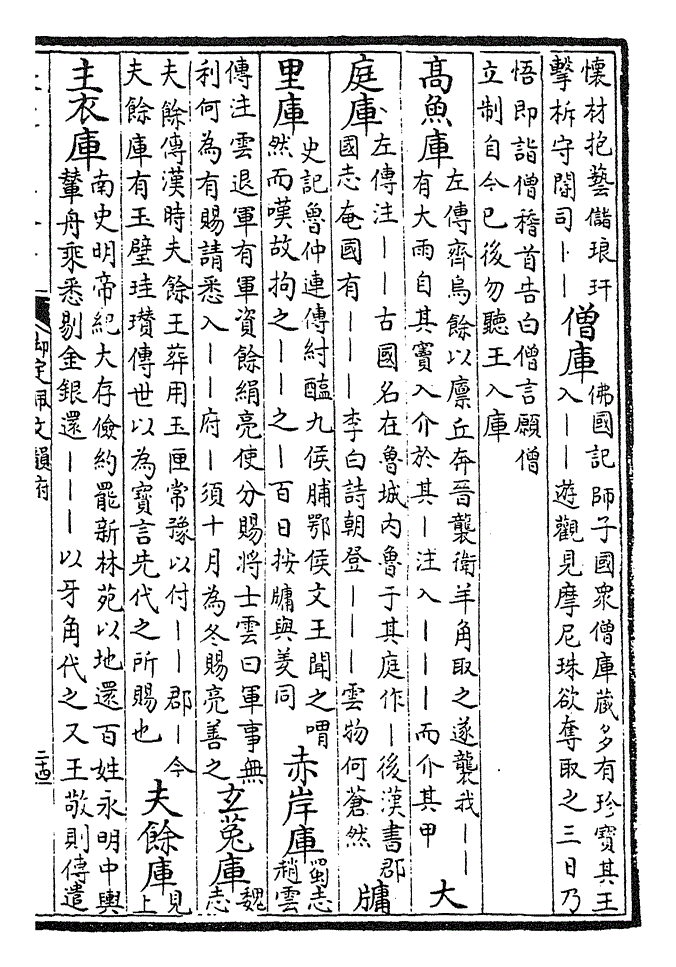 懷材抱藝儲琅玕
擊柝守閽司｜｜
僧庫
佛國記師子國衆僧庫藏多有珍寶其王
入｜｜遊觀見摩尼珠欲奪取之三日乃
悟即詣僧稽首告白僧言願僧
立制自今已後勿聽王入庫
高魚庫
左傳齊烏餘以廩丘奔晉襲衛羊角取之遂襲我｜｜
有大雨自其竇入介於其｜注入｜｜｜而介其甲
大
庭庫
左傳注｜｜古國名在魯城内魯于其庭作｜後漢書郡
國志奄國有｜｜｜李白詩朝登｜｜｜雲物何蒼然
牖
里庫
史記魯仲連傳紂醢九侯脯鄂侯文王聞之喟
然而嘆故拘之｜｜之｜百日按牖與羑同
赤岸庫
蜀志
趙雲
傳注雲退軍有軍資餘絹亮使分賜將士雲曰軍事無
利何為有賜請悉入｜｜府｜須十月為冬賜亮善之
玄菟庫
魏
志
夫餘傳漢時夫餘王葬用玉匣常豫以付｜｜郡｜今
夫餘庫有玉璧珪瓚傳世以為寶言先代之所賜也
夫餘庫
見
上
主衣庫
南史明帝紀大存儉約罷新林苑以地還百姓永明中輿
輦舟乘悉剔金銀還｜｜｜以牙角代之又王敬則傳遣
御定佩文韻府